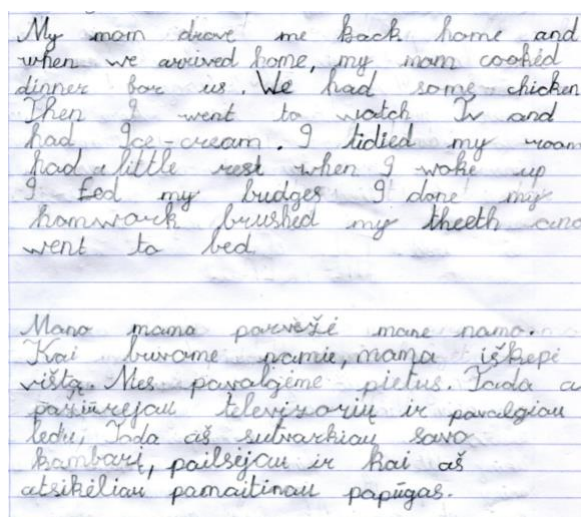 My mom drove me back home and
when we arrived home, my mom cooked
dinner for us. We had some chicken
Then I went to watch Tv and
had Ice-cream. I tidied my room
had a little rest when I woke up
I fed my budges I done my
homwork brushed my theeth and
went to bed
Mano mama parvėžė mane namo.
Kai buvome namie, mama iškepė
vištą. Mes pavalgėme pietus. Tada a
pažiūrėjau televizorių ir pavalgiau
ledu, Tada aš sutvarkiau savo
kambarį, pailsėjau ir kai aš
atsikėliau pamaitinau papūgas.